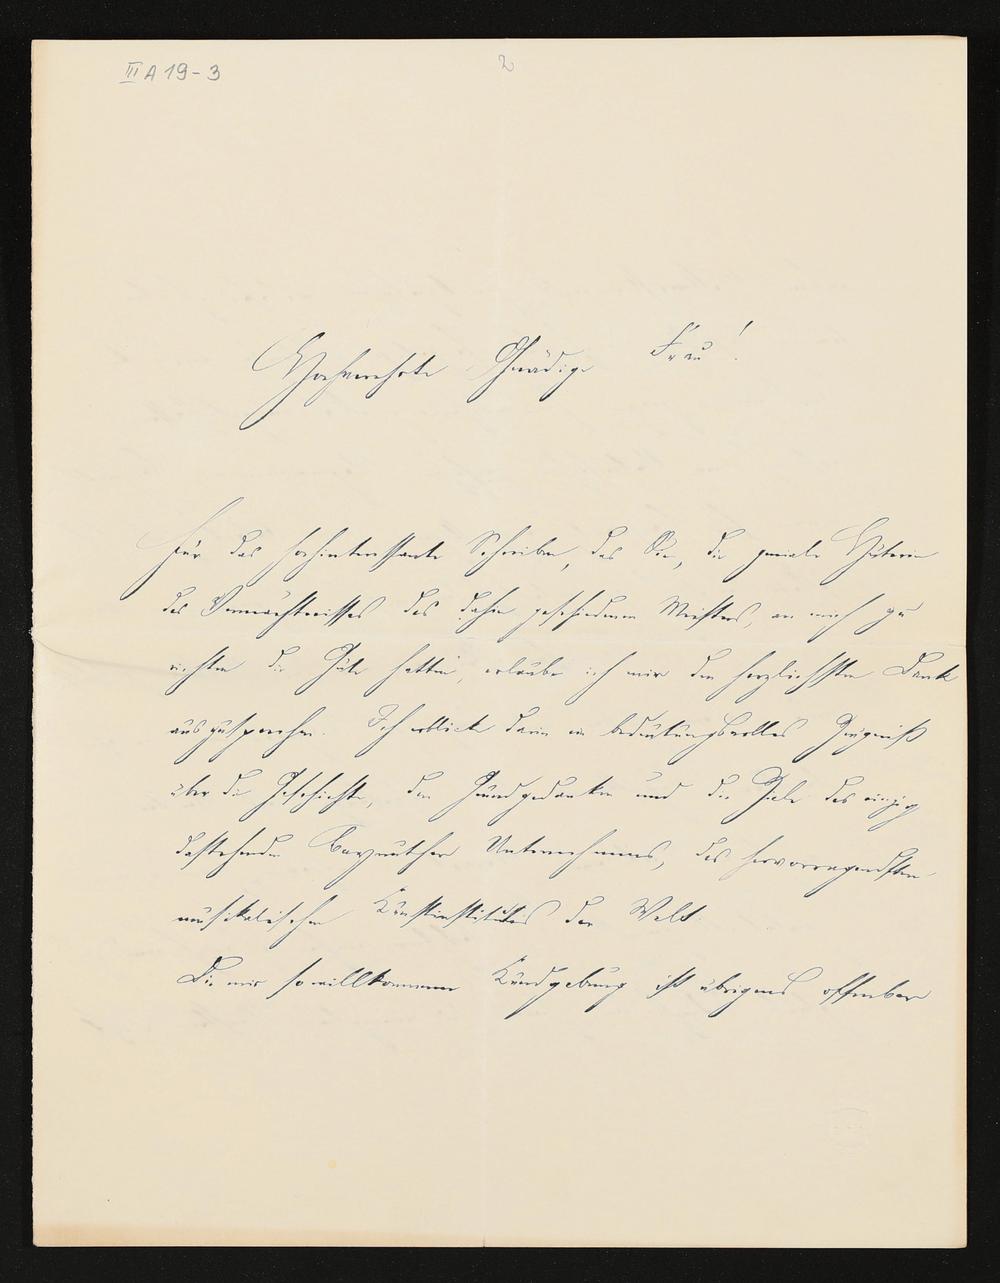 III A 19-3
2
Hochverehrte Gnädige Frau!
Für das hochinteressante Schreiben, das Sie, die geniale Hüterin
des Vermächtnisses des dahin geschiedenen Meisters, an mich zu
richten die Güte hatten, erlaube ich mir den herzlichsten Dank
auszusprechen. Ich erblicke darin ein bedeutungsvolles Zeugniß
über die Geschichte, den Grundgedanken und die Ziele des einzig
dastehenden Bayreuther Unternehmens, des hervorragendsten
musikalischen Kunstinstitutes der Welt.
Die mir so willkommene Kundgebung ist übrigens offenbar